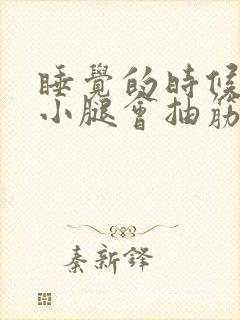 睡覺的時候
小腿會抽筋
秦新鋒